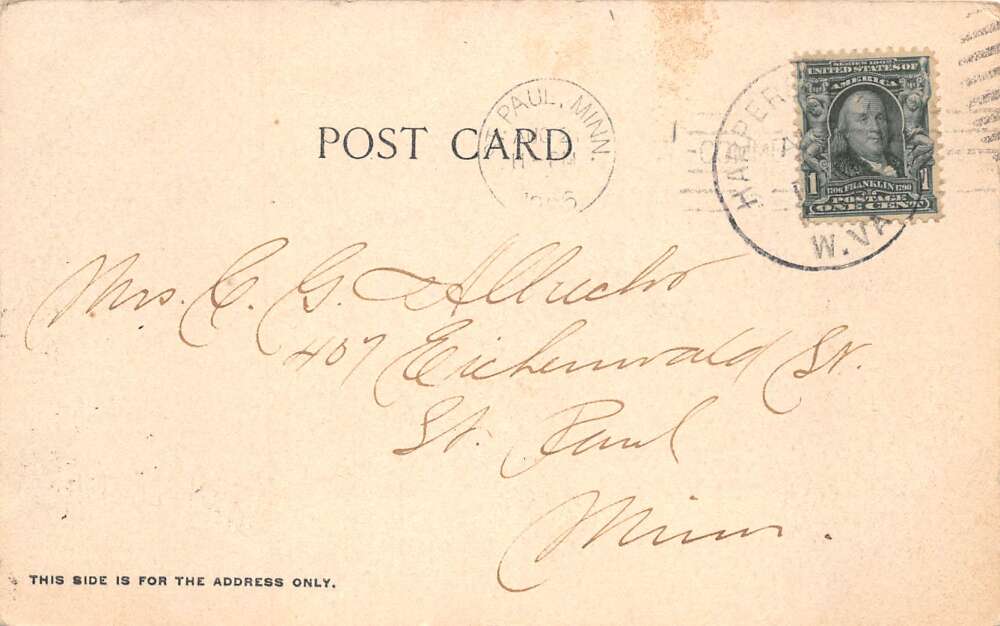 POST CARD
ST. PAUL, MINN.
HARPER
W. VA
SERIES 1902
UNITED STATES OF
AMERICA
1 1706 FRANKLIN 1790 1
POSTAGE
ONE CENT
Mrs. C. G. Allrecht
407 Eichenwald St.
St. Paul
Minn.
THIS SIDE IS FOR THE ADDRESS ONLY.